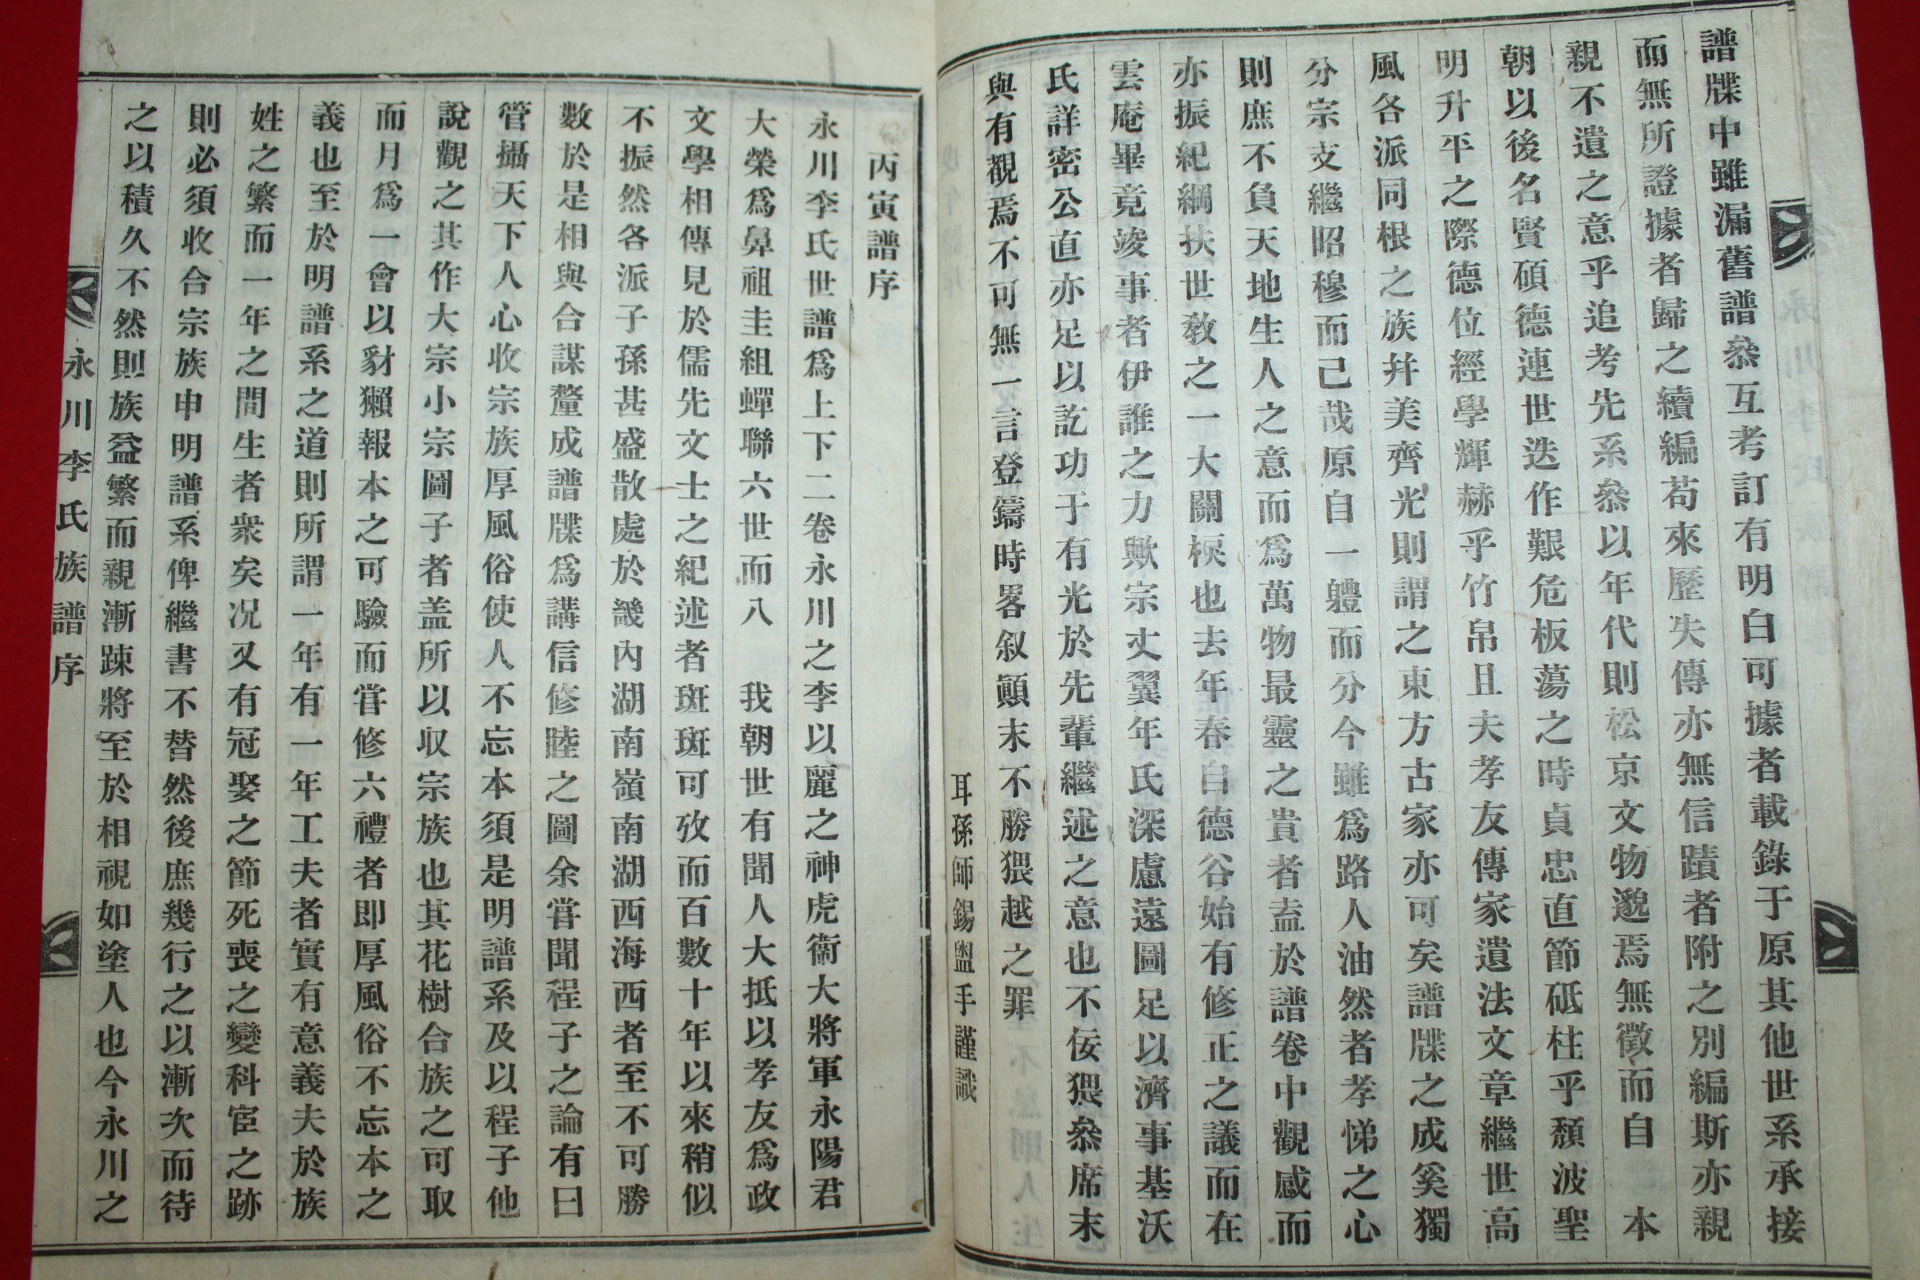 譜牒中雖漏舊譜叅互考訂有明白可據者載錄于原其他世系承接
而無所證據者歸之續編苟來歷失傳亦無信蹟者附之別編斯亦親
親不遺之意乎追考先系叅以年代則松京文物邈焉無徵而自　本
朝以後名賢碩德連世迭作艱危板蕩之時貞忠直節砥柱乎頹波聖
明升平之際德位經學輝赫乎竹帛且夫孝友傳家遺法文章繼世高
風各派同根之族幷美齊光則謂之東方古家亦可矣譜牒之成奚獨
分宗支繼昭穆而已哉原自一軆而分今雖爲路人油然者孝悌之心
則庶不負天地生人之意而爲萬物最靈之貴者盍於譜卷中觀感而
亦振紀綱扶世敎之一大關棙也去年春自德谷始有修正之議而在
雲庵畢竟竣事者伊誰之力歟宗丈翼年氏深慮遠圖足以濟事基沃
氏詳密公直亦足以訖功于有光於先輩繼述之意也不佞猥叅席末
與有觀焉不可無一言登鑄時畧叙顚末不勝猥越之罪
耳孫師錫盥手謹識
丙寅譜序
永川李氏世譜爲上下二卷永川之李以麗之神虎衞大將軍永陽君
大榮爲鼻祖圭組蟬聯六世而八　我朝世有聞人大抵以孝友爲政
文學相傳見於儒先文士之紀述者斑斑可攷而百數十年以來稍似
不振然各派子孫甚盛散處於畿內湖南嶺南湖西海西者至不可勝
數於是相與合謀釐成譜牒爲講信修睦之圖余甞聞程子之論有曰
管攝天下人心收宗族厚風俗使人不忘本須是明譜系及以程子他
說觀之其作大宗小宗圖子者盖所以収宗族也其花樹合族之可取
而月爲一會以豺獺報本之可驗而甞修六禮者即厚風俗不忘本之
義也至於明譜系之道則所謂一年有一年工夫者實有意義夫於族
姓之繁而一年之間生者衆矣况又有冠娶之節死喪之變科宦之跡
則必須收合宗族申明譜系俾繼書不替然後庶幾行之以漸次而待
之以積久不然則族益繁而親漸踈將至於相視如塗人也今永川之
永川李氏族譜序